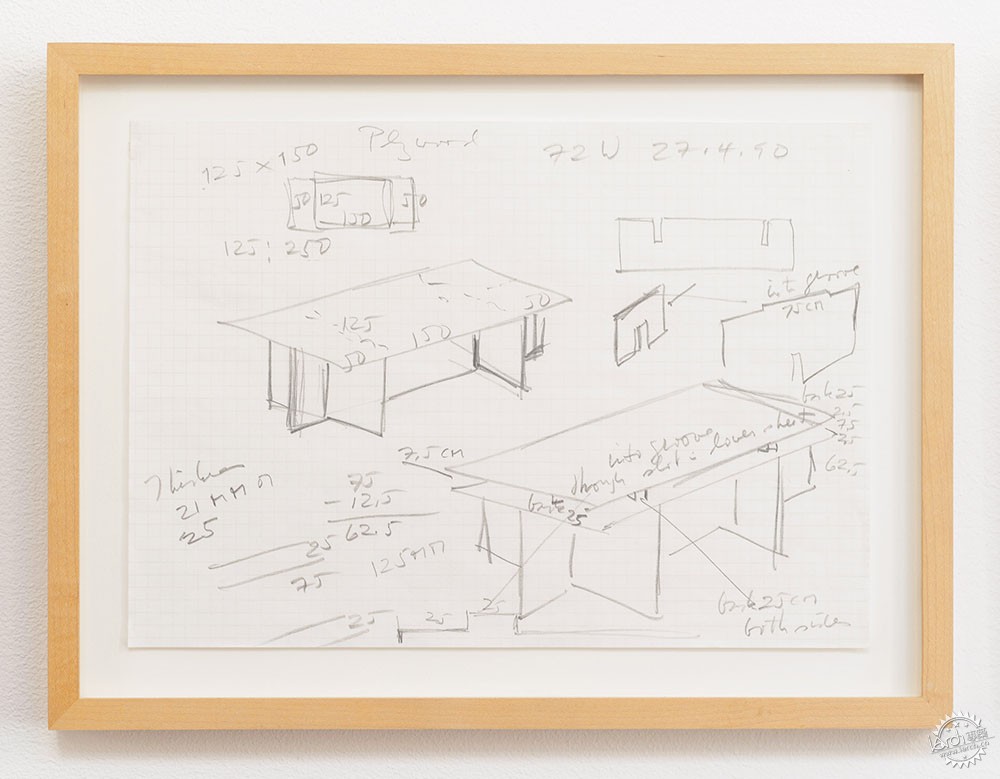 Plywood
72 W 27.4.90
125 x 150
50 125 50
150
125: 250
into groove
75 CM
50
125
150
50
25
2,5
7,5
2,5
62,5
7,5 CM
into groove
through slot lower sheet
25
21 MM
25
75
- 12,5
62,5
25
75
125 MM
25
25
25
25 CM
both sides